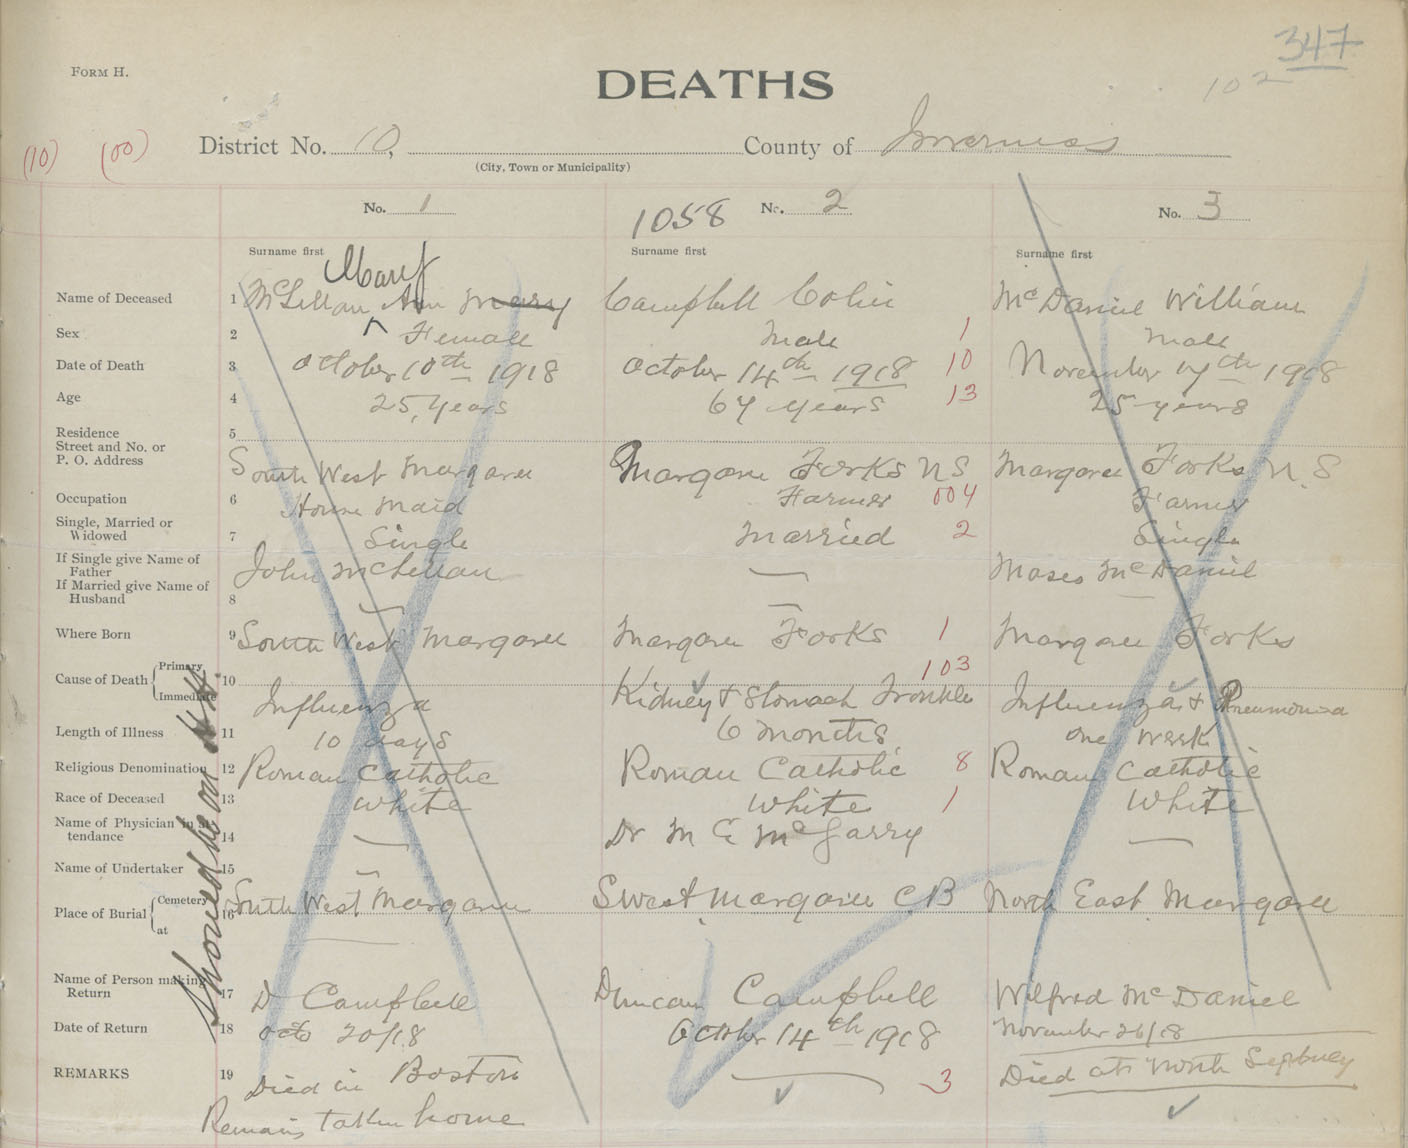 347
102
FORM H.
DEATHS
(10) (00) District No. 10, County of Inverness
(City, Town or Municipality)
No. 1
1058 No. 2
No. 3
Surname first
Surname first
Surname first
Mary
Name of Deceased 1 McLellan Ann Mary
Campbell Colin
McDaniel William
Sex 2 Female
Male 1
Male
Date of Death 3 October 10th 1918
October 14th 1918 10
November 17th 1918
Age 4 25 years
67 years 13
25 years
Residence 5
Street and No. or
P. O. Address
South West Margaree
Margaree Forks N S
Margaree Forks N.S
Occupation 6 House Maid
Farmer 004
Farmer
Single, Married or
Widowed 7 Single
Married 2
Single
If Single give Name of
Father
John McLellan
—
Moses McDaniel
If Married give Name of
Husband 8 —
—
—
Where Born 9 South West Margaree
Margaree Forks 1
Margaree Forks
103
Cause of Death { Primary
Immediate 10
Influenza
Kidney & Stomach Trouble
Influenza & Pneumonia
Length of Illness 11 10 days
6 months
one week
Religious Denomination 12 Roman Catholic
Roman Catholic 8
Roman Catholic
Race of Deceased 13 White
White 1
White
Name of Physician in at-
tendance 14 —
Dr M E McGarry
—
Name of Undertaker 15 —
Place of Burial { Cemetery
at 16
South West Margaree
S West Margaree C B
North East Margaree
Name of Person making
Return 17 D Campbell
Duncan Campbell
Wilfred McDaniel
Date of Return 18 Octo 20/18
October 14th 1918
November 26/18
REMARKS 19 Died in Boston
Remains taken home
— 3
Died at North Sydney
Should be on